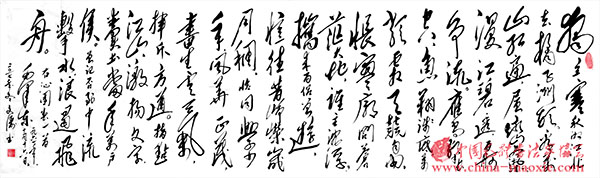 独立寒秋湘江北
去橘子洲头看万
山红遍层林尽染
漫江碧透百舸
争流鹰击长
空鱼翔浅底万
类霜天竞自由
怅寥廓问苍
茫大地谁主沉浮
携来百侣曾游
忆往昔峥嵘岁
月稠恰同学少
年风华正茂
书生意气
挥斥方遒指点
江山激扬文字
粪土当年万户
侯曾记否到中流
击水浪遏飞
舟